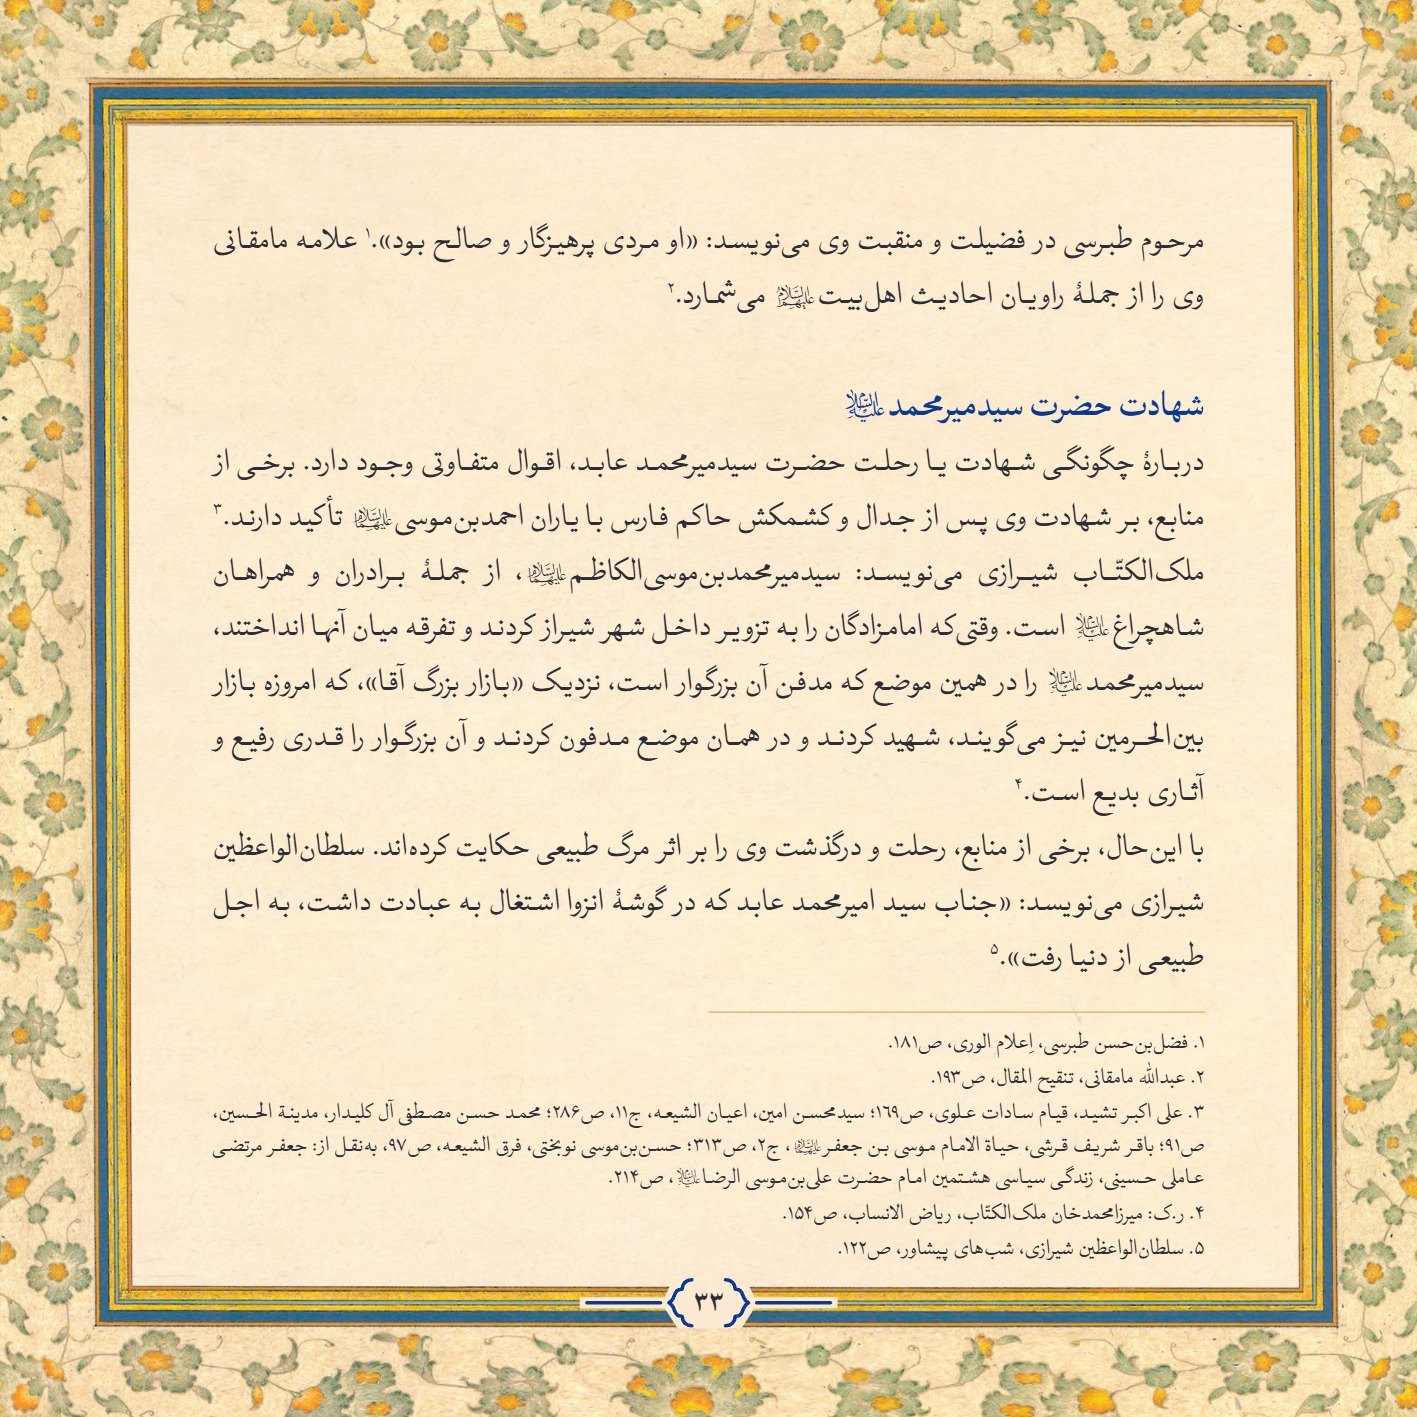 مرحوم طبرسی در فضیلت و منقبت وی می‌نویسد: «او مردی پرهیزگار و صالح بود».۱ علامه مامقانی
وی را از جملهٔ راویان احادیث اهل‌بیت علیهم‌السلام می‌شمارد.۲
شهادت حضرت سیدمیرمحمد علیه‌السلام
دربارهٔ چگونگی شهادت یا رحلت حضرت سیدمیرمحمد عابد، اقوال متفاوتی وجود دارد. برخی از
منابع، بر شهادت وی پس از جدال و کشمکش حاکم فارس با یاران احمدبن‌موسی علیهما‌السلام تأکید دارند.۳
ملک‌الکتّاب شیرازی می‌نویسد: سیدمیرمحمدبن‌موسی‌الکاظم علیهما‌السلام، از جملهٔ برادران و همراهان
شاهچراغ علیه‌السلام است. وقتی‌که امامزادگان را به تزویر داخل شهر شیراز کردند و تفرقه میان آنها انداختند،
سیدمیرمحمد علیه‌السلام را در همین موضع که مدفن آن بزرگوار است، نزدیک «بازار بزرگ آقا»، که امروزه بازار
بین‌الحرمین نیز می‌گویند، شهید کردند و در همان موضع مدفون کردند و آن بزرگوار را قدری رفیع و
آثاری بدیع است.۴
با این‌حال، برخی از منابع، رحلت و درگذشت وی را بر اثر مرگ طبیعی حکایت کرده‌اند. سلطان‌الواعظین
شیرازی می‌نویسد: «جناب سید امیرمحمد عابد که در گوشهٔ انزوا اشتغال به عبادت داشت، به اجل
طبیعی از دنیا رفت».۵
۱. فضل‌بن‌حسن طبرسی، إعلام الوری، ص۱۸۱.
۲. عبدالله مامقانی، تنقیح المقال، ص۱۹۳.
۳. علی اکبر تشید، قیام سادات علوی، ص۱۶۹؛ سیدمحسن امین، اعیان الشیعه، ج۱۱، ص۲۸۶؛ محمد حسن مصطفی آل کلیدار، مدینة الحسین،
ص۹۱؛ باقر شریف قرشی، حیاة الامام موسی بن جعفر علیهما‌السلام، ج۲، ص۳۱۳؛ حسن‌بن‌موسی نوبختی، فرق الشیعه، ص۹۷، به‌نقل از: جعفر مرتضی
عاملی حسینی، زندگی سیاسی هشتمین امام حضرت علی‌بن‌موسی الرضا علیه‌السلام، ص۲۱۴.
۴. ر.ک: میرزامحمدخان ملک‌الکتّاب، ریاض الانساب، ص۱۵۴.
۵. سلطان‌الواعظین شیرازی، شب‌های پیشاور، ص۱۲۲.
۳۳